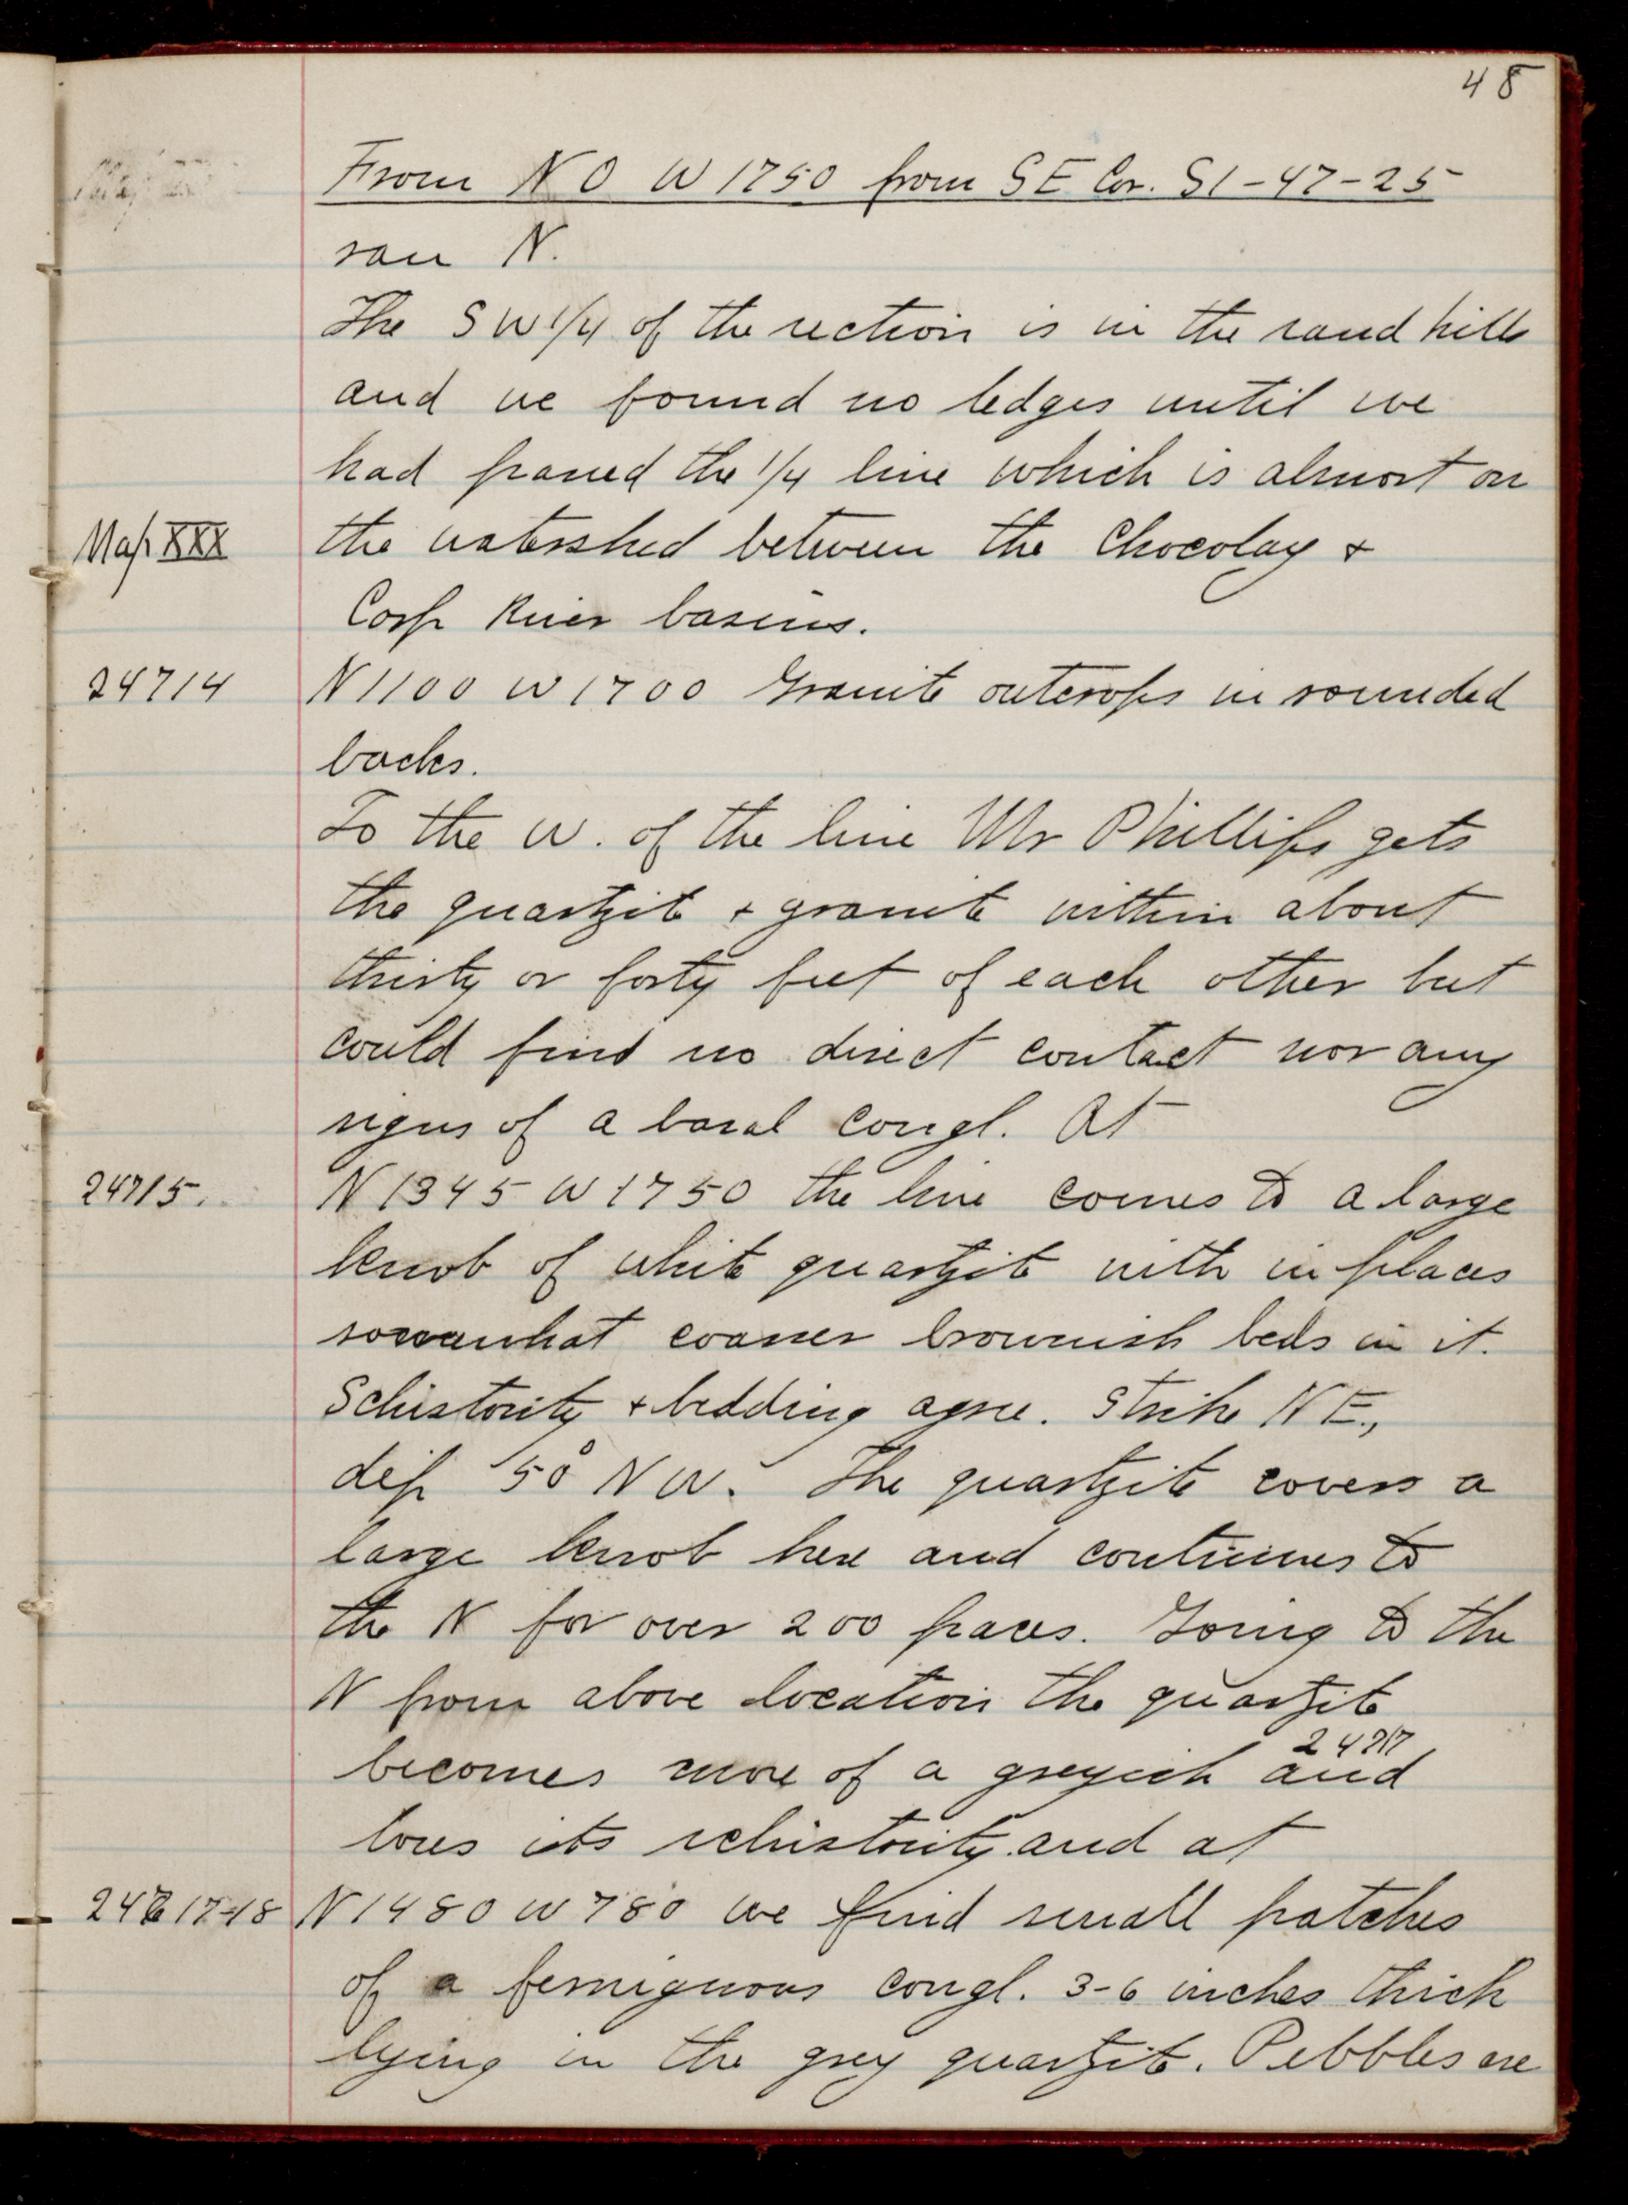 48
From N O W 1750 from SE Cor. S1-47-25
ran N.
The SW 1/4 of the section is in the sand hills
and we found no ledges until we
had passed the 1/4 line which is almost on
Map XXX the watershed between the Chocolay +
Carp River basins.
24714 N 1100 W 1700 Granite outcrops in rounded
backs.
To the W. of the line Mr Phillips gets
the quartzite + granite within about
thirty or forty feet of each other but
could find no direct contact nor any
signs of a basal congl. At
24715. N 1345 W 1750 the line comes to a large
knob of white quartzite with in places
somewhat coarser brownish beds in it.
Schistosity + bedding agree. Strike NE.,
dip 50° NW. The quartzite covers a
large knob here and continues to
the N for over 200 paces. Going to the
N from above location the quartzite
becomes more of a greyish 24717 and
loses its schistosity and at
N 1480 W 780 we find small patches
of a ferruginous congl. 3-6 inches thick
lying in the grey quartzite. Pebbles are